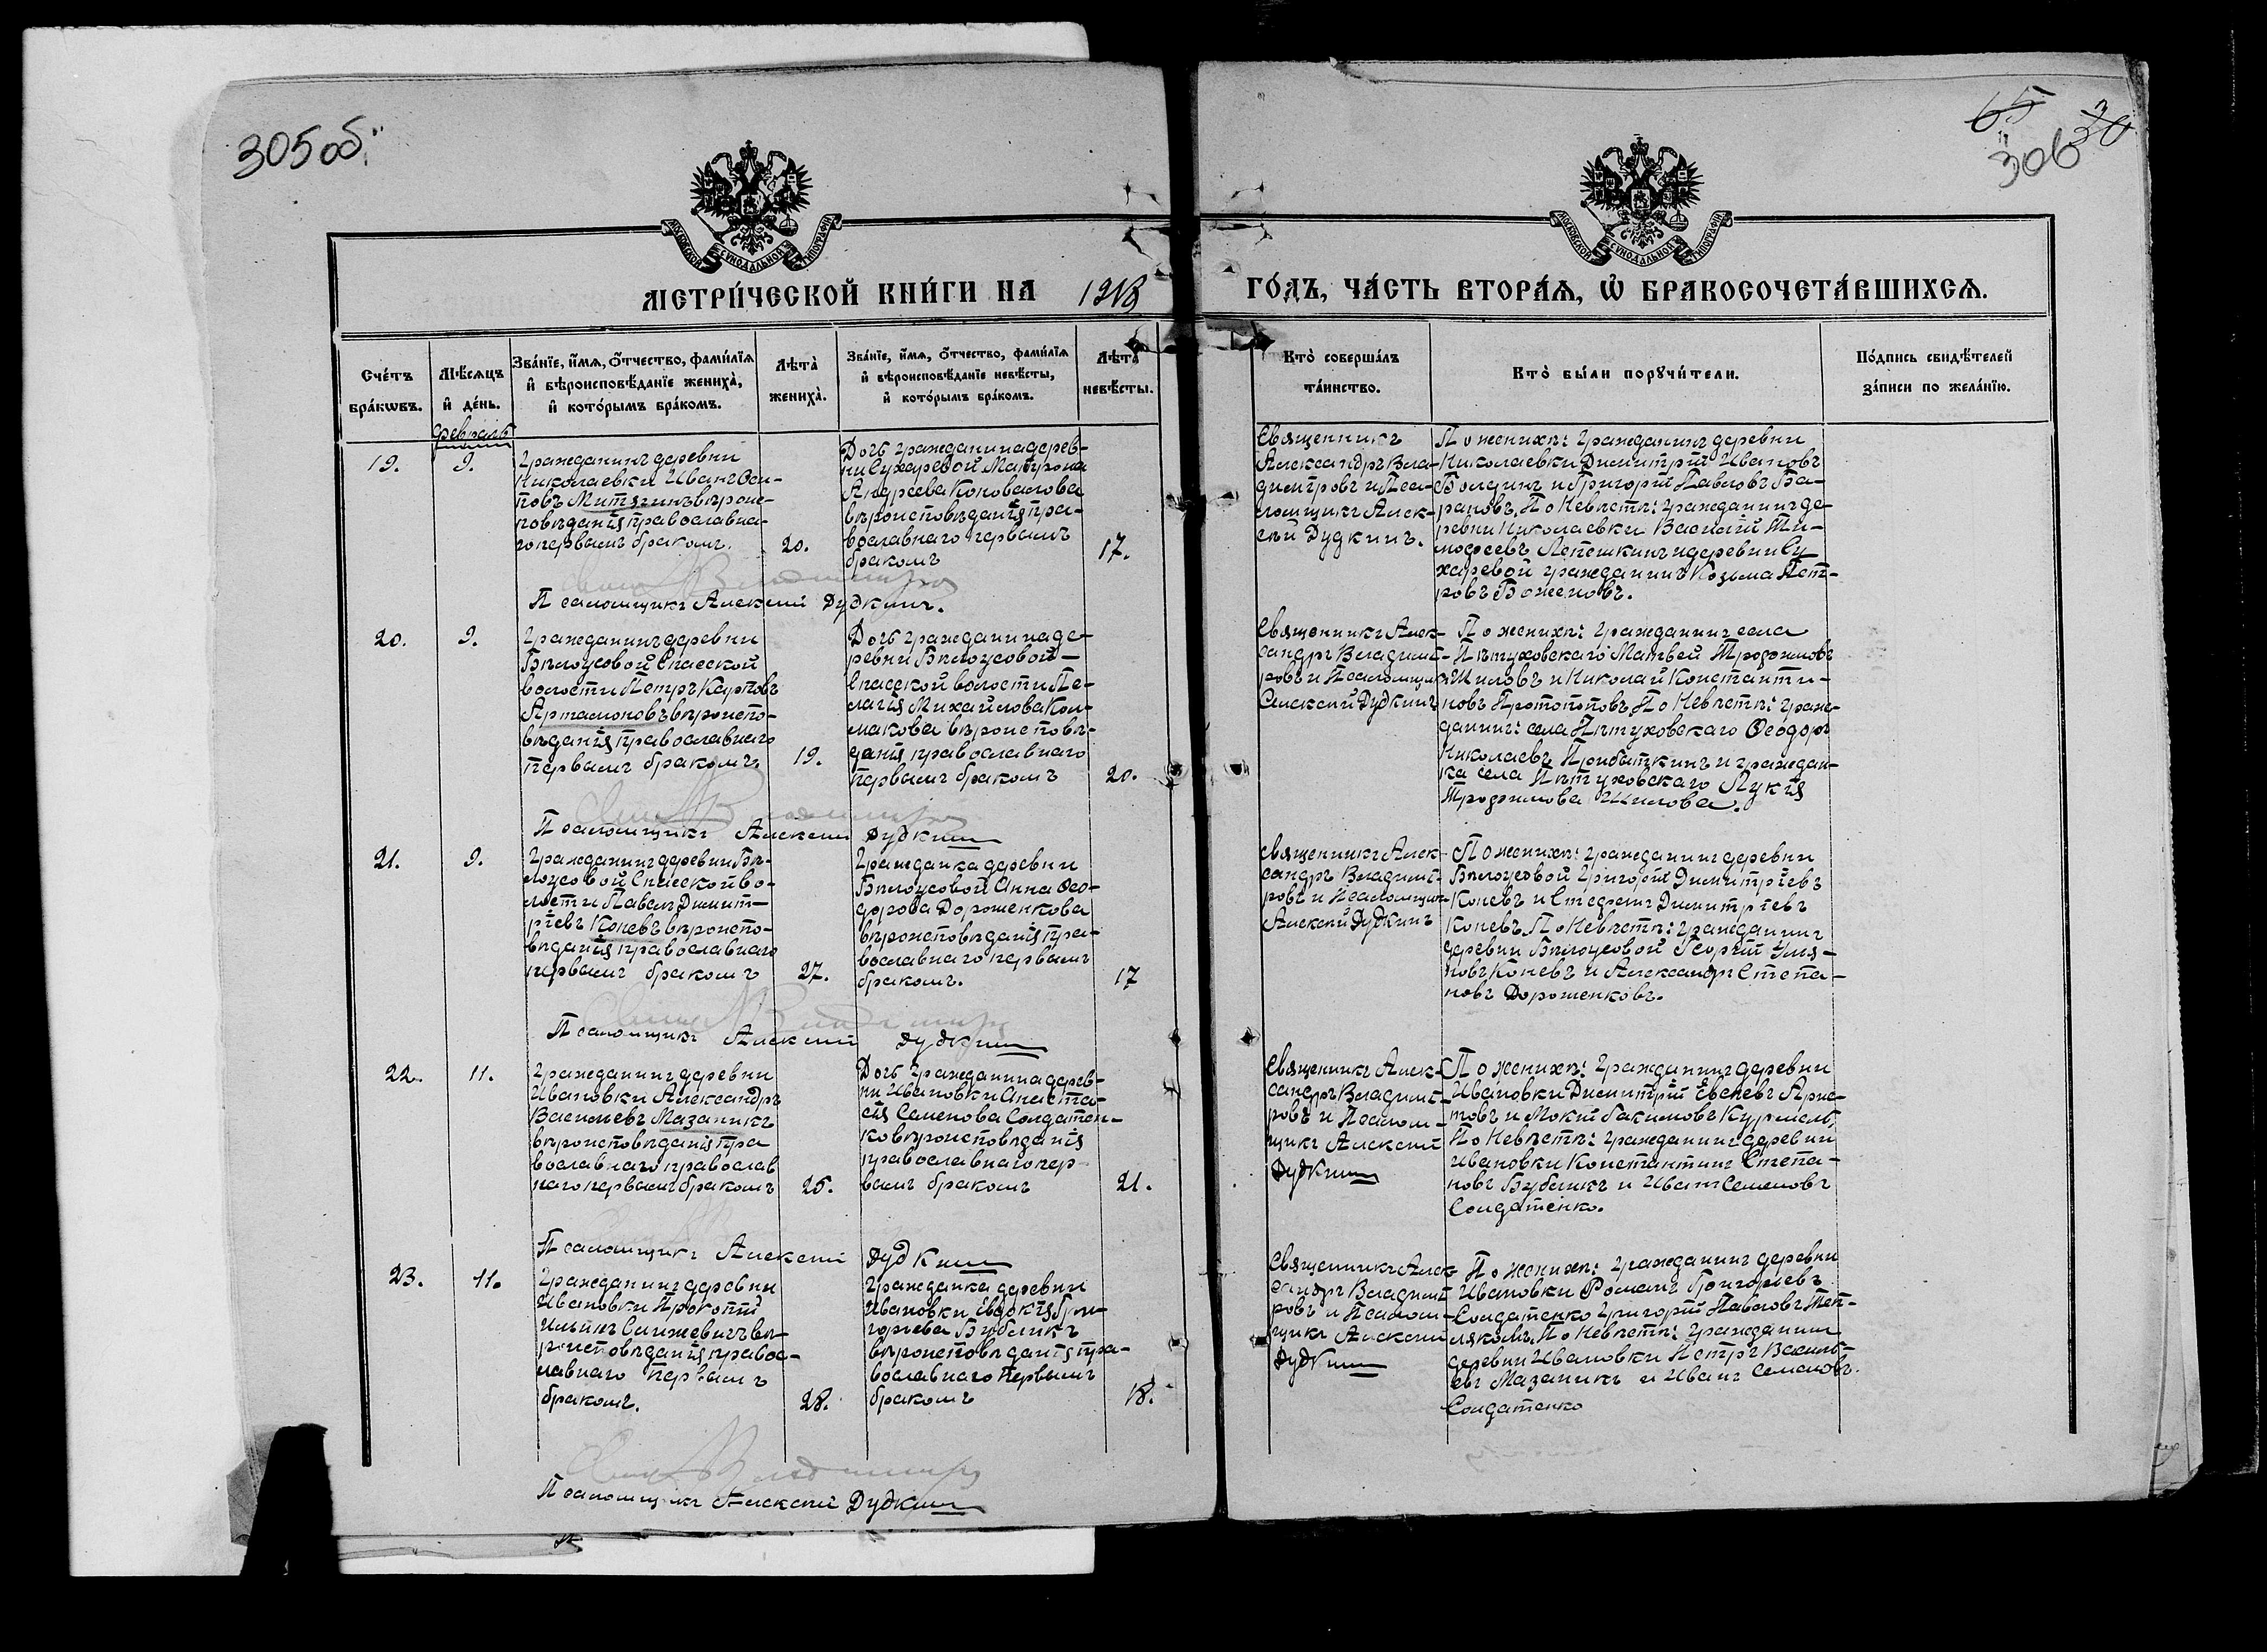 305 об.
65
30
306
МОСКОВСКОЙ СѴНОДАЛЬНОЙ ТИПОГРАФІИ
МОСКОВСКОЙ СѴНОДАЛЬНОЙ ТИПОГРАФІИ
МЕТРИ́ЧЕСКОЙ КНИ́ГИ НА 1918 ГО́ДЪ, ЧА́СТЬ ВТОРА́Я, Ѡ҆ БРАКОСОЧЕТА́ВШИХСЯ.
Сче́тъ бра́кѡвъ.
Мѣ́сяцъ и҆ де́нь.
Зва́нїе, и҆́мя, ѻ҆́тчество, фами́лїя
и҆ вѣроисповѣ́данїе жениха̀,
и҆ кото́рымъ бра́комъ.
Лѣта̀ жениха̀.
Зва́нїе, и҆́мя, ѻ҆́тчество, фами́лїя
и҆ вѣроисповѣ́данїе невѣ́сты,
и҆ кото́рымъ бра́комъ.
Лѣта̀ невѣ́сты.
Кто̀ соверша́лъ
та́инство.
Кто̀ бы́ли порꙋчи́тели.
По́дпись свидѣ́телей
за́писи по жела́нїю.
февраль
19.
9.
Гражданинъ деревни
Николаевки Иванъ Оси-
повъ Митягинъ вѣроис-
повѣданія православна-
го первымъ бракомъ.
20.
Дочь гражданина дерев-
ни Сухаревой Матрона
Андреева Коновалова
вѣроисповѣданія пра-
вославнаго первымъ
бракомъ
17.
Священникъ
Александръ Вла-
диміровъ и Пса-
ломщикъ Алек-
сѣй Дудкинъ.
По женихѣ: гражданинъ деревни
Николаевки Димитрій Ивановъ
Болдинъ и Григорій Павловъ Ба-
рановъ, По Невѣстѣ: гражданинъ де-
ревни Николаевки Василій Ти-
мофеевъ Лепешкинъ и деревни Су
харевой гражданинъ Козьма Пет-
ровъ Боженовъ.
Псаломщикъ Алексей Дудкинъ.
20.
9.
Гражданинъ деревни
Бѣлоусовой Спасской
волости Петръ Карповъ
Артамоновъ вѣроиспо-
вѣданія православнаго
первымъ бракомъ
19.
Дочь гражданина де-
ревни Бѣлоусовой-
Спасской волости Пе-
лагія Михайлова Кол-
макова вѣроисповѣ-
данія православнаго
первымъ бракомъ
20.
Священникъ Алек-
сандръ Владимі-
ровъ и Псаломщикъ
Алексей Дудкинъ
По женихѣ: гражданинъ села
Пѣтуховскаго Матвей Трофимовъ
Шиловъ и Николай Константи-
новъ Протопоповъ, По Невѣстѣ: граж-
данинъ: села Пѣтуховскаго Ѳеодоръ
Николаевъ Прибыткинъ и граждан-
ка села Пѣтуховскаго Лукія
Трофимова Шилова.
Псаломщикъ Алексей Дудкинъ
21.
9.
Гражданинъ деревни Бѣ-
лоусовой Спасской во-
лости Павелъ Димит-
ріевъ Коневъ вѣроиспо-
вѣданія православнаго
первымъ бракомъ
27.
Гражданка деревни
Бѣлоусовой Анна Ѳео-
дорова Дорошенкова
вѣроисповѣданія пра-
вославнаго первымъ
бракомъ.
17
Священникъ Алек-
сандръ Владимі-
ровъ и Псаломщикъ
Алексей Дудкинъ
По женихѣ: гражданинъ деревни
Бѣлоусовой Григорій Димитріевъ
Коневъ и Стефанъ Димитріевъ
Коневъ, По Невѣстѣ: гражданинъ
деревни Бѣлоусовой Георгій Улья-
новъ Коневъ и Александръ Степа-
новъ Дорошенковъ.
Псаломщикъ Алексей Дудкинъ
22.
11.
Гражданинъ деревни
Ивановки Александръ
Васильевъ Мазаникъ
вѣроисповѣданія пра
вославнаго православ
наго первымъ бракомъ
25.
Дочь гражданина дерев-
ни Ивановки Анаста-
сія Семенова Солдатен-
ко вѣроисповѣданія
православнаго пер-
вымъ бракомъ
21.
Священникъ Алек-
сандръ Владимі-
ровъ и Псалом-
щикъ Алексей
Дудкинъ
По женихѣ: гражданинъ деревни
Ивановки Димитрій Евсеевъ Арис-
товъ и Мокий Іакимовъ Курмель,
По Невѣстѣ: гражданинъ деревни
Ивановки Константинъ Степа-
новъ Бубликъ и Иванъ Семеновъ
Солдатенко.
Псаломщикъ Алексей Дудкинъ
23.
11.
Гражданинъ деревни
Ивановки Прокопій
Ильинъ Синкевичъ вѣ-
роисповѣданія правос-
лавнаго первымъ
бракомъ.
28.
Гражданка деревни
Ивановки Евдокія Гри-
горьева Бубликъ
вѣроисповѣданія пра-
вославнаго первымъ
бракомъ
18.
Священникъ Алек-
сандръ Владимі-
ровъ и Псалом-
щикъ Алексей
Дудкинъ
По женихѣ: гражданинъ деревни
Ивановки Романъ Григорьевъ
Солдатенко Григорій Павловъ Теп-
ляковъ, По Невѣстѣ: гражданинъ
деревни Ивановки Петръ Василь-
евъ Мазаникъ и Иванъ Семеновъ
Солдатенко
Псаломщикъ Алексей Дудкинъ